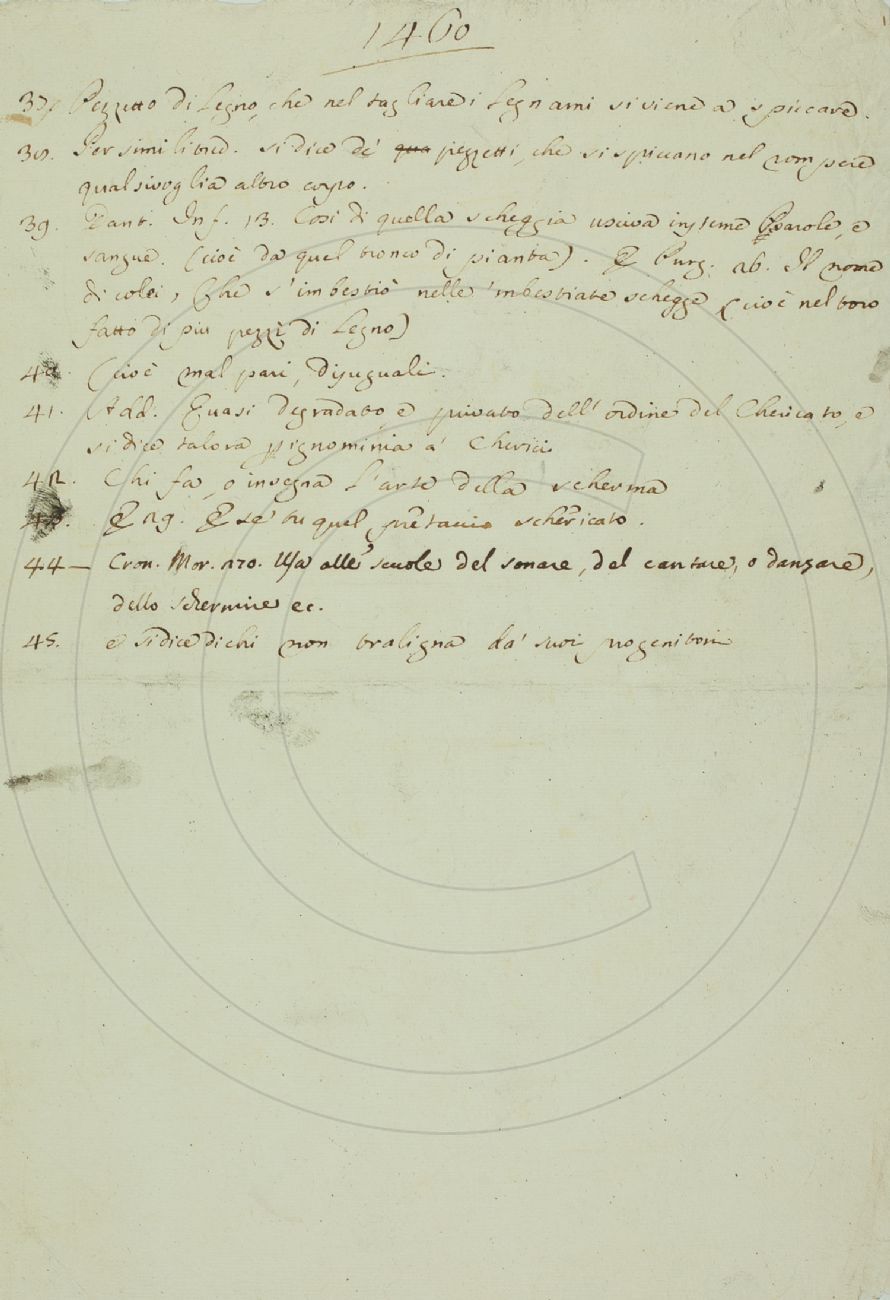 1460
37. Pezzetto di Legno, che nel tagliare i Legnami si viene a spiccare.
38. Per similitud. si dice de' qua pezzetti, che si spiccano nel rompere
qualsivoglia altro corpo.
39. Dant. Inf. 13. Così di quella scheggia usciva insieme Parole, e
sangue. (cioè da quel tronco di pianta). E Purg. 26. Il nome
di colei, Che s'imbestiò nelle 'mbestiate schegge (cioè nel toro
fatto di più pezzi di Legno)
40. (cioè mal pari, disuguali.
41. Add. Quasi degradato, e privato dell' ordine del Chericato, e
si dice talora p ignominia a' Cherici
42. Chi fa, o insegna l'arte della scherma
43. E 29. E se' tu quel pretaccio schericato.
44 — Cron. Mor. 270. Usa alle scuole del sonare, del cantare, o danzare,
dello schermire ec.
45. e si dice di chi non traligna da' suoi progenitori